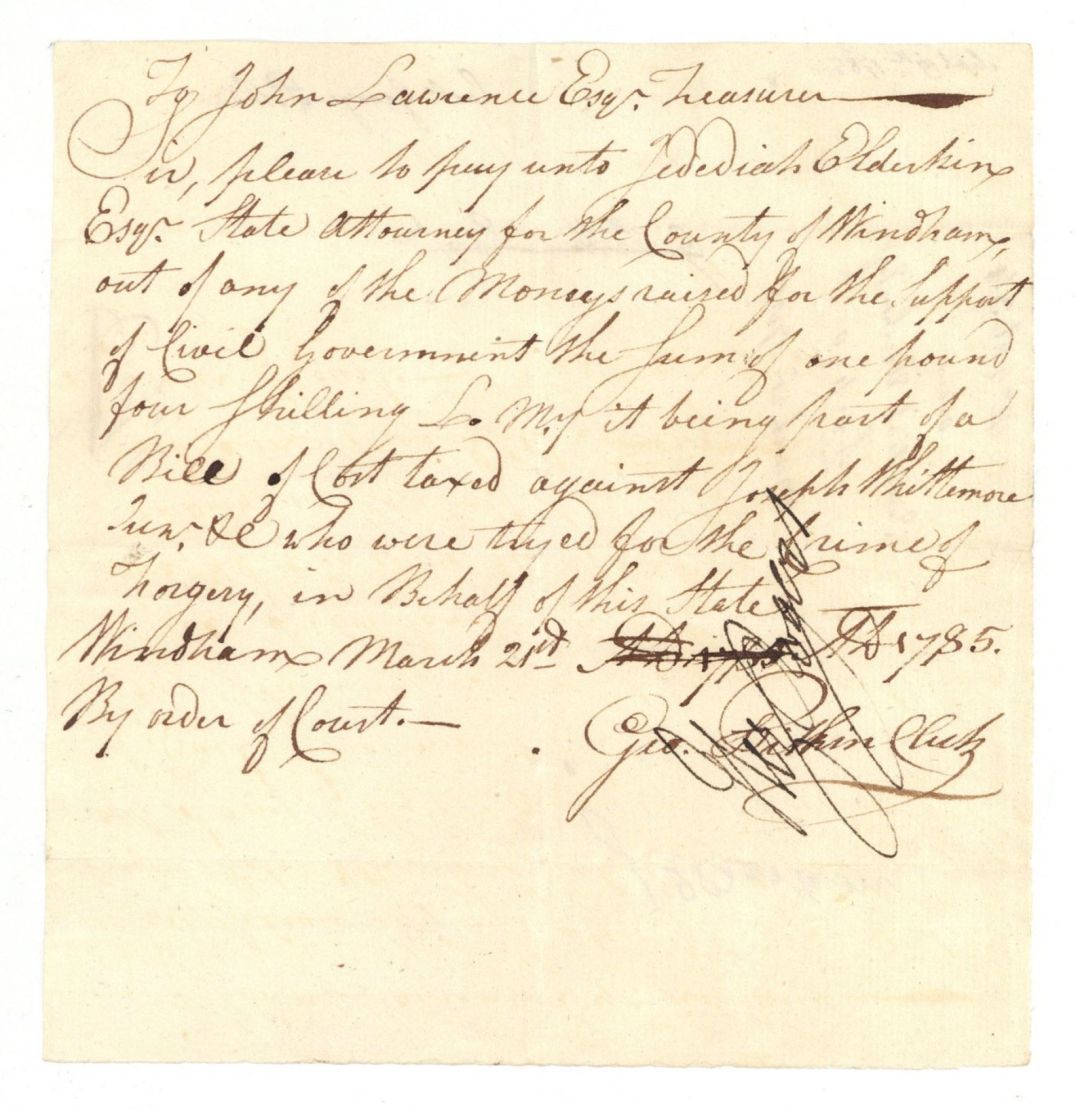 To John Lawrence Esqr. Treasurer
Sir, please to pay unto Jedediah Elderkin
Esqr. State Attourney for the County of Windham,
out of any of the Moneys raised for the Support
of Civil Government the Sum of one pound
four Shilling L. My it being part of a
Bill of Cost taxed against Joseph Whittemore
Junr. &c who were tryed for the Crime of
Forgery, in Behalf of this State
Windham March 21st AD 1785 AD 1785.
By order of Court.—
Geo. Clerk